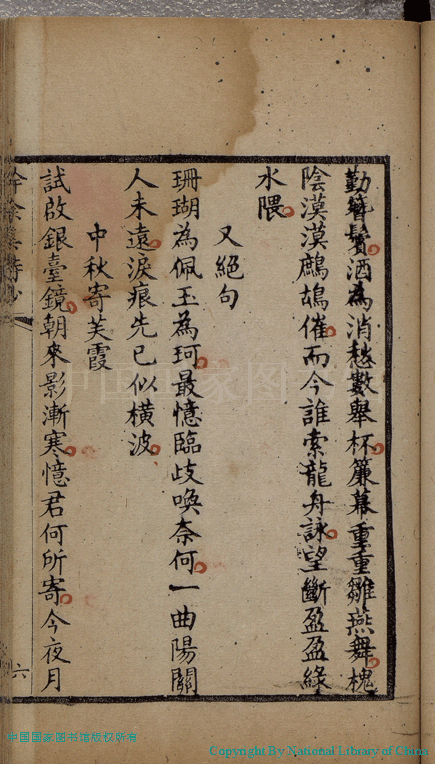 勤簪鬢酒為消愁數舉杯簾幕重重雛燕舞槐
陰漠漠鷓鴣催而今誰索龍舟詠望斷盈盈綠
水隈
又絕句
珊瑚為佩玉為珂最憶臨歧喚奈何一曲陽關
人未遠淚痕先已似橫波
中秋寄芙霞
試啟銀臺鏡朝來影漸寒憶君何所寄今夜月
六
中国国家图书馆
中国国家图书馆版权所有
Copyright By National Library of China